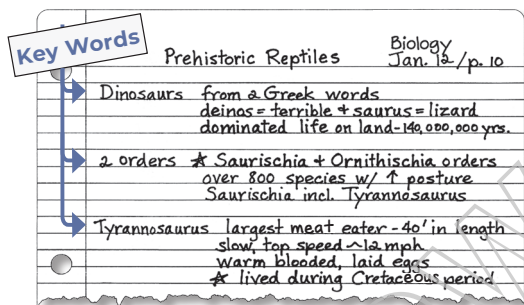 Key Words
Biology
Prehistoric Reptiles Jan. 12/p. 10
Dinosaurs from 2 Greek words
deinos = terrible + saurus = lizard
dominated life on land-140,000,000 yrs.
2 orders ☆ Saurischia + Ornithischia orders
over 800 species w/ ↑ posture
Saurischia incl. Tyrannosaurus
Tyrannosaurus largest meat eater - 40' in length
slow, top speed ~12 mph
warm blooded, laid eggs
☆ lived during Cretaceous period